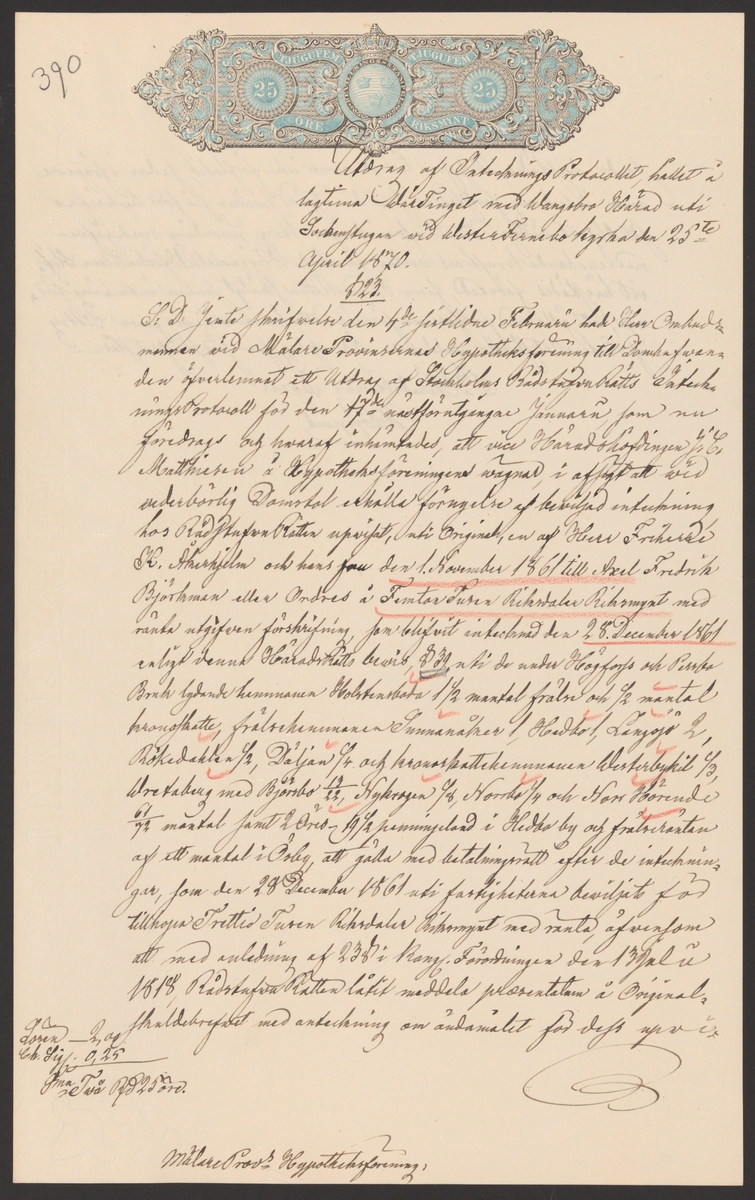 390
TJUGUFEM TJUGUFEM
25 25
ÖRE RIKSMYNT
Utdrag af IntecknингsProtocollet, hållet å
lagtima WårTinget med Wangsbro Härad uti
Sockenstugan wid WesterFernebo kyrka den 25te
April 1870.
§ 23.
S. D. Jemte skrifwelse den 4de sistlidne Februarii hade Herr Ombuds-
mannen wid Mälare Provinsernas Hypotheksförening till Domhafwan-
den öfverlemnat ett Utdrag af Stockholms RådstufwuRätts Inteck-
ningsProtocoll för den 17de nästförutgångne Januarii som nu
föredrogs och hwaraf inhämtades, att vice Häradshöfdingen
Matthiesen å Hypotheksföreningens wägnar, i afsigt att wid
vederbörlig Domstol erhålla förnyelse af bewiljad inteckning
hos RådstufwuRätten upwisat, uti Original, en af Herr Friherre
K. Åkerhjelm och hans fru den 1. November 1861 till Axel Fredrik
Björkman eller Ordres å Femton Tusen Riksdaler Riksmynt med
ränta utgifven förskrifning, som blifvit intecknad den 28. December 1861
enligt denna HäradsRätts bewis, § 39, uti de under Högfors och Persbo
Bruk lydande hemmanen Holstensboda 1 1/2 mantal frälse och 1/2 mantal
kronoskatte, frälsehemmanen Sunnanåker 1, Hedbo 1, Långsjö 2,
Bökedahlen 1/2, Däljan 1/4 och kronoskattehemmanen Westerbykil 1/3,
Wretaberg med Björsbo 13/22, Nykrogen 1/8, Norrbo 1/4 och Norr Hörende
61/72 mantal samt 2 Öres 19 1/2 penningeland i Hedbo by och frälseräntan
af ett mantal i Österby, att gälla med betalningsrätt efter de intecknin-
gar, som den 28 December 1861 uti fastigheterna bewiljats för
tillhopa Trettio Tusen Riksdaler Riksmynt med ränta, äfvensom
att med anledning af 23§ i Kongl. Förordningen den 13 Juli
1818, RådstufwuRätten låtit meddela præsentatum å Original-
skuldebrefvet med anteckning om ändamålet för dess upvi-
Lösen — 2,00
Ch. Sig. 0,25
Två Rd 25 öre.
Mälare Provs Hypotheksförening,